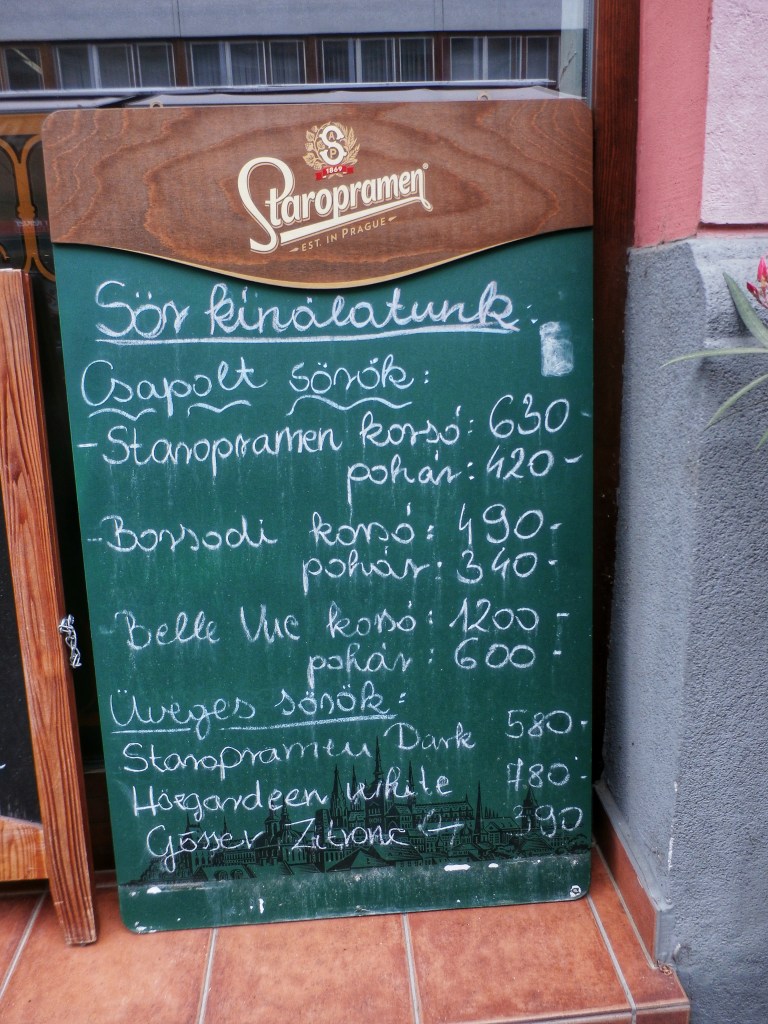 S
A P
1869
Staropramen
EST. IN PRAGUE
Sör kínálatunk:
Csapolt sörök:
-Staropramen korsó: 630-
pohár: 420-
-Borsodi korsó: 490-
pohár: 340-
Belle Vue korsó: 1200-
pohár: 600-
Üveges sörök:
Staropramen Dark 580-
Hoegardeen white 780-
Gösser Zitrone 390